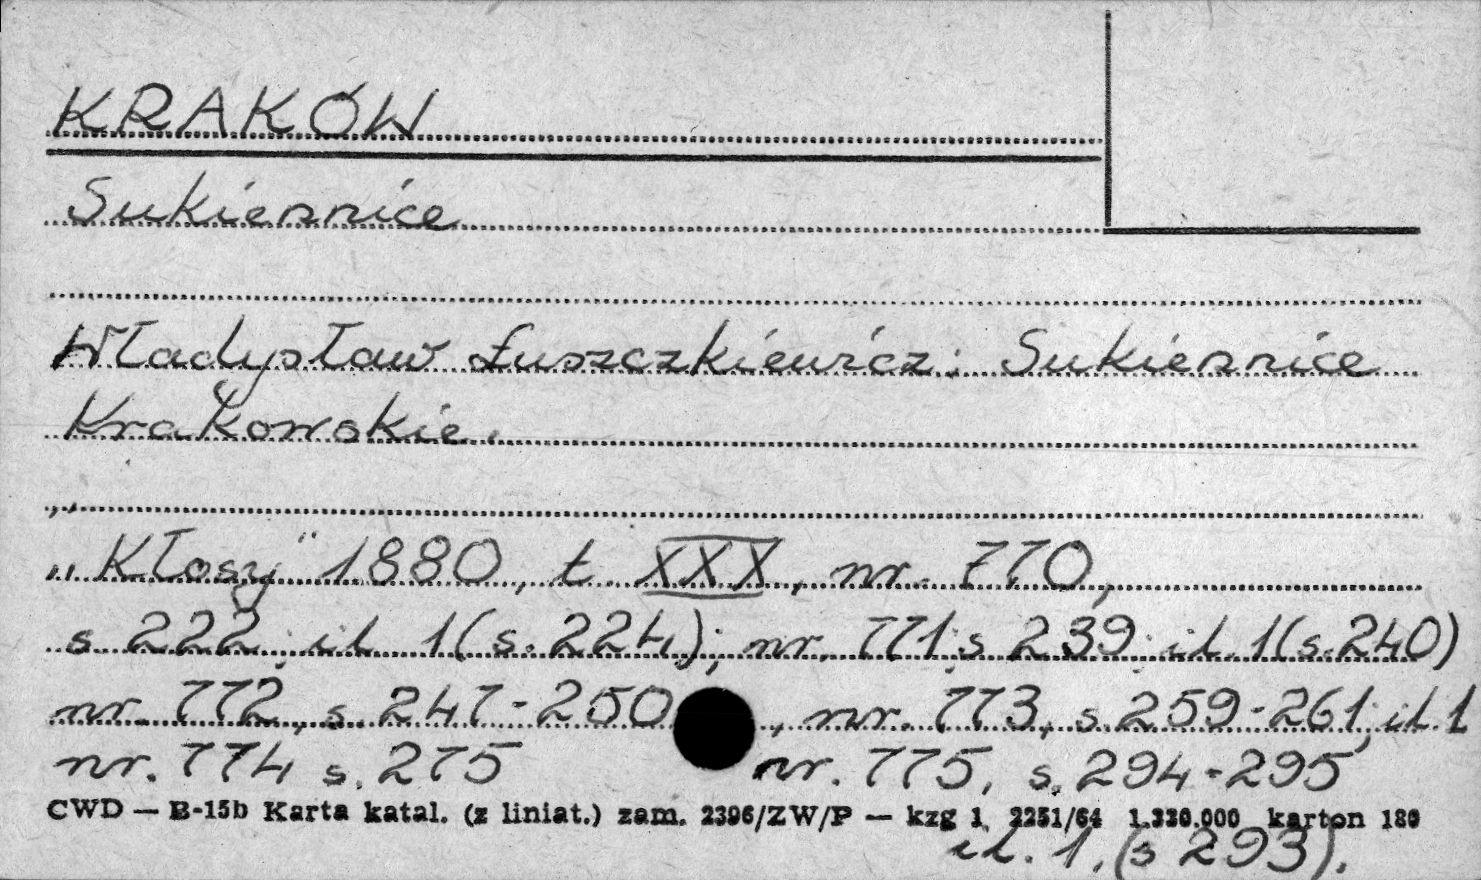 KRAKÓW
Sukiennice
Władysław Łuszczkiewicz: Sukiennice
Krakowskie.
„
„Kłosy" 1880, t. XXX, nr. 770,
s. 222, il. 1 (s. 224); nr. 771, s. 239, il. 1 (s. 240)
nr. 772, s. 247-250, nr. 773, s. 259-261, il. 1
nr. 774 s. 275 nr. 775, s. 294-295
CWD — B-15b Karta katal. (z liniat.) zam. 2396/ZW/P — kzg 1 2251/64 1.330.000 karton 180
il. 1, (s 293).